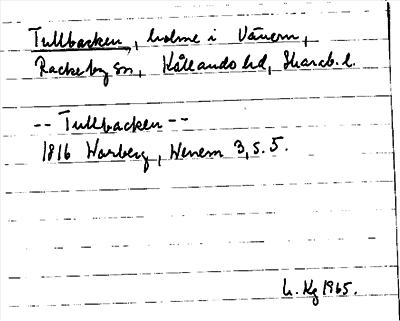 Tullbacken, holme i Vänern,
Rackeby sn, Kållands hd, Skarab. l.
-- Tullbacken --
1816 Warberg, Wenern 3, s. 5.
L. Kg 1965.